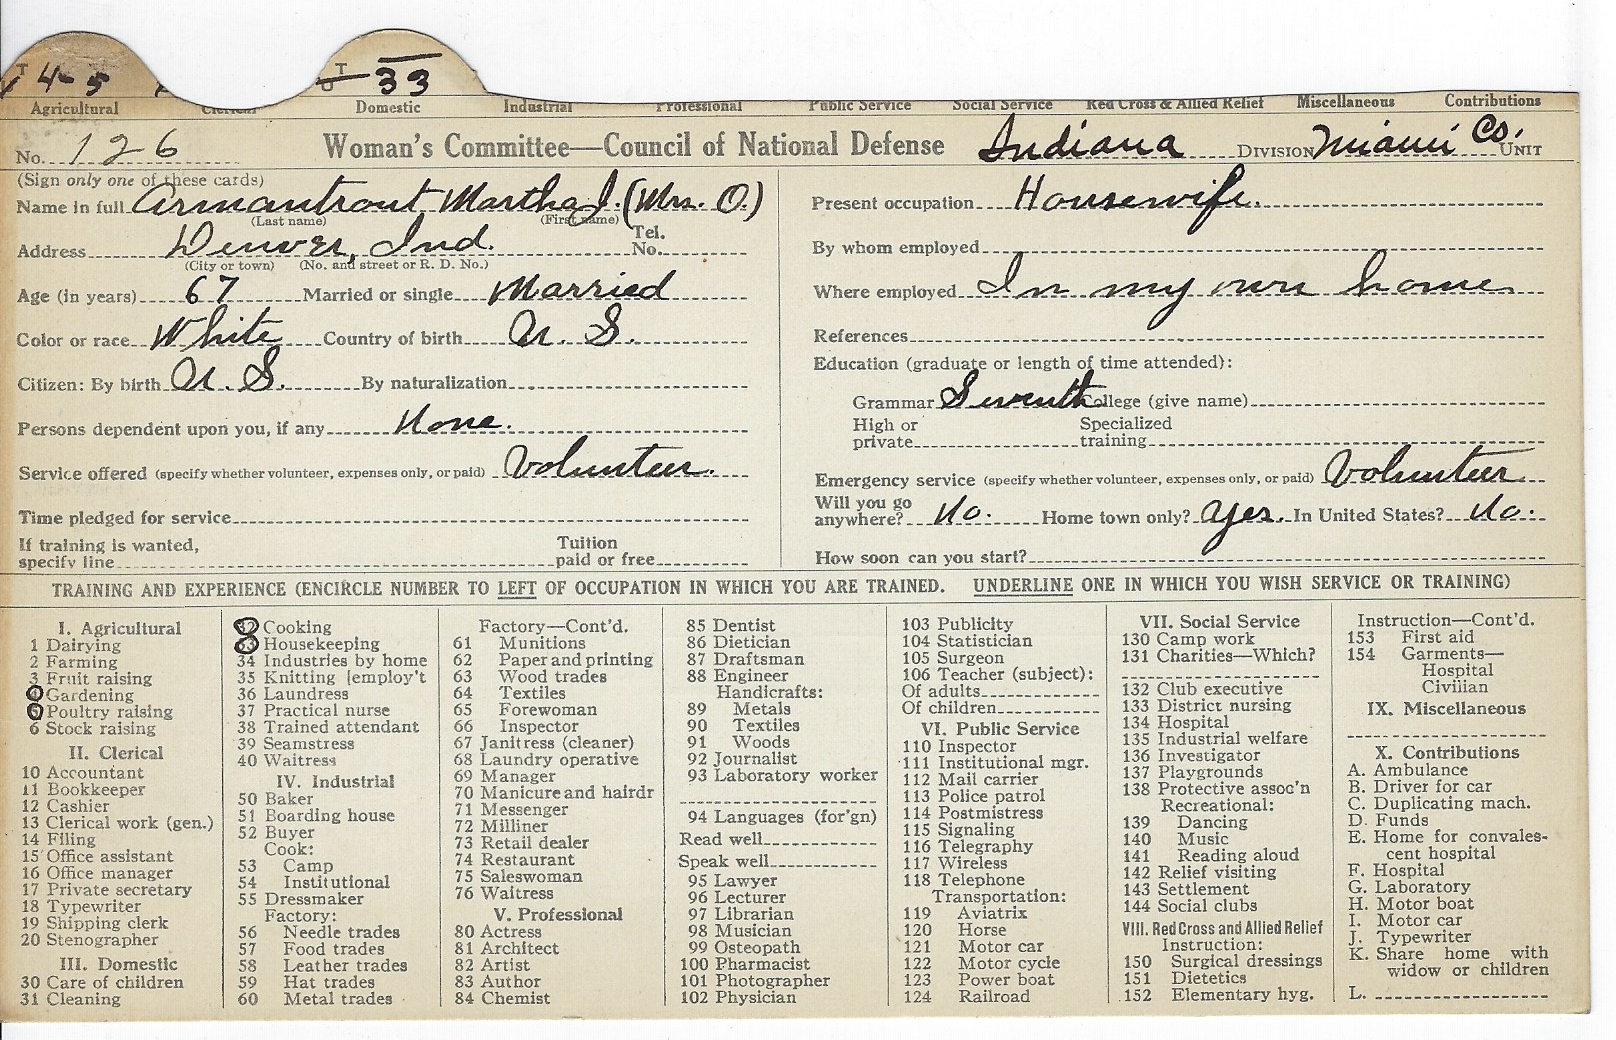 T 4-5 T 33
Agricultural Clerical Domestic Industrial Professional Public Service Social Service Red Cross & Allied Relief Miscellaneous Contributions
No. 126 Woman's Committee—Council of National Defense Indiana DIVISION Miami Co. UNIT
(Sign only one of these cards)
Name in full Armantrout Martha J. (Mrs. O.)
(Last name) (First name)
Address Denver, Ind. Tel. No.
(City or town) (No. and street or R. D. No.)
Age (in years) 67 Married or single Married
Color or race White Country of birth U. S.
Citizen: By birth U. S. By naturalization
Persons dependent upon you, if any None.
Service offered (specify whether volunteer, expenses only, or paid) Volunteer.
Time pledged for service
If training is wanted, specify line Tuition paid or free
Present occupation Housewife.
By whom employed
Where employed In my own home
References
Education (graduate or length of time attended):
Grammar Seventh College (give name)
High or private Specialized training
Emergency service (specify whether volunteer, expenses only, or paid) Volunteer
Will you go anywhere? No. Home town only? Yes. In United States? No.
How soon can you start?
TRAINING AND EXPERIENCE (ENCIRCLE NUMBER TO LEFT OF OCCUPATION IN WHICH YOU ARE TRAINED. UNDERLINE ONE IN WHICH YOU WISH SERVICE OR TRAINING)
I. Agricultural
1 Dairying
2 Farming
3 Fruit raising
4 Gardening
5 Poultry raising
6 Stock raising
II. Clerical
10 Accountant
11 Bookkeeper
12 Cashier
13 Clerical work (gen.)
14 Filing
15 Office assistant
16 Office manager
17 Private secretary
18 Typewriter
19 Shipping clerk
20 Stenographer
III. Domestic
30 Care of children
31 Cleaning
32 Cooking
33 Housekeeping
34 Industries by home
35 Knitting [employ't
36 Laundress
37 Practical nurse
38 Trained attendant
39 Seamstress
40 Waitress
IV. Industrial
50 Baker
51 Boarding house
52 Buyer
Cook:
53 Camp
54 Institutional
55 Dressmaker
Factory:
56 Needle trades
57 Food trades
58 Leather trades
59 Hat trades
60 Metal trades
Factory—Cont'd.
61 Munitions
62 Paper and printing
63 Wood trades
64 Textiles
65 Forewoman
66 Inspector
67 Janitress (cleaner)
68 Laundry operative
69 Manager
70 Manicure and hairdr
71 Messenger
72 Milliner
73 Retail dealer
74 Restaurant
75 Saleswoman
76 Waitress
V. Professional
80 Actress
81 Architect
82 Artist
83 Author
84 Chemist
85 Dentist
86 Dietician
87 Draftsman
88 Engineer
Handicrafts:
89 Metals
90 Textiles
91 Woods
92 Journalist
93 Laboratory worker
94 Languages (for'gn)
Read well
Speak well
95 Lawyer
96 Lecturer
97 Librarian
98 Musician
99 Osteopath
100 Pharmacist
101 Photographer
102 Physician
103 Publicity
104 Statistician
105 Surgeon
106 Teacher (subject):
Of adults
Of children
VI. Public Service
110 Inspector
111 Institutional mgr.
112 Mail carrier
113 Police patrol
114 Postmistress
115 Signaling
116 Telegraphy
117 Wireless
118 Telephone
Transportation:
119 Aviatrix
120 Horse
121 Motor car
122 Motor cycle
123 Power boat
124 Railroad
VII. Social Service
130 Camp work
131 Charities—Which?
132 Club executive
133 District nursing
134 Hospital
135 Industrial welfare
136 Investigator
137 Playgrounds
138 Protective assoc'n
Recreational:
139 Dancing
140 Music
141 Reading aloud
142 Relief visiting
143 Settlement
144 Social clubs
VIII. Red Cross and Allied Relief
Instruction:
150 Surgical dressings
151 Dietetics
152 Elementary hyg.
Instruction—Cont'd.
153 First aid
154 Garments—
Hospital
Civilian
IX. Miscellaneous
X. Contributions
A. Ambulance
B. Driver for car
C. Duplicating mach.
D. Funds
E. Home for convales-
cent hospital
F. Hospital
G. Laboratory
H. Motor boat
I. Motor car
J. Typewriter
K. Share home with
widow or children
L.